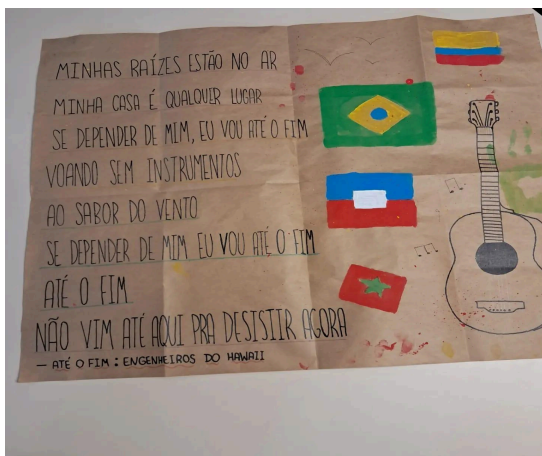 MINHAS RAÍZES ESTÃO NO AR
MINHA CASA É QUALQUIR LUGAR
SE DEPENDER DE MIM, EU VOU ATÉ O FIM
VOANDO SEM INSTRUMENTOS
AO SABOR DO VENTO
SE DEPENDER DE MIM EU VOU ATÉ O FIM
ATÉ O FIM
NÃO VIM ATÉ AQUI PRA DESISTIR AGORA
— ATÉ O FIM : ENGENHEIROS DO HAWAII